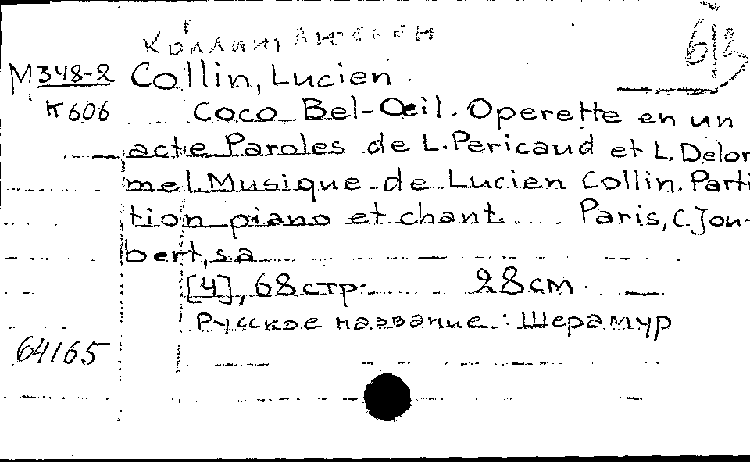 Коллин, Люсьен
М 348-2 Collin, Lucien.
К 606 Coco Bel-Œil. Operette en un
acte Paroles de L. Pericaud et L. Delor
mel. Musique de Lucien Collin. Parti
tion piano et chant. Paris, C. Jou-
bert, s.a
[4], 68 стр. 28 см.
Русское название: Шерамур
64165